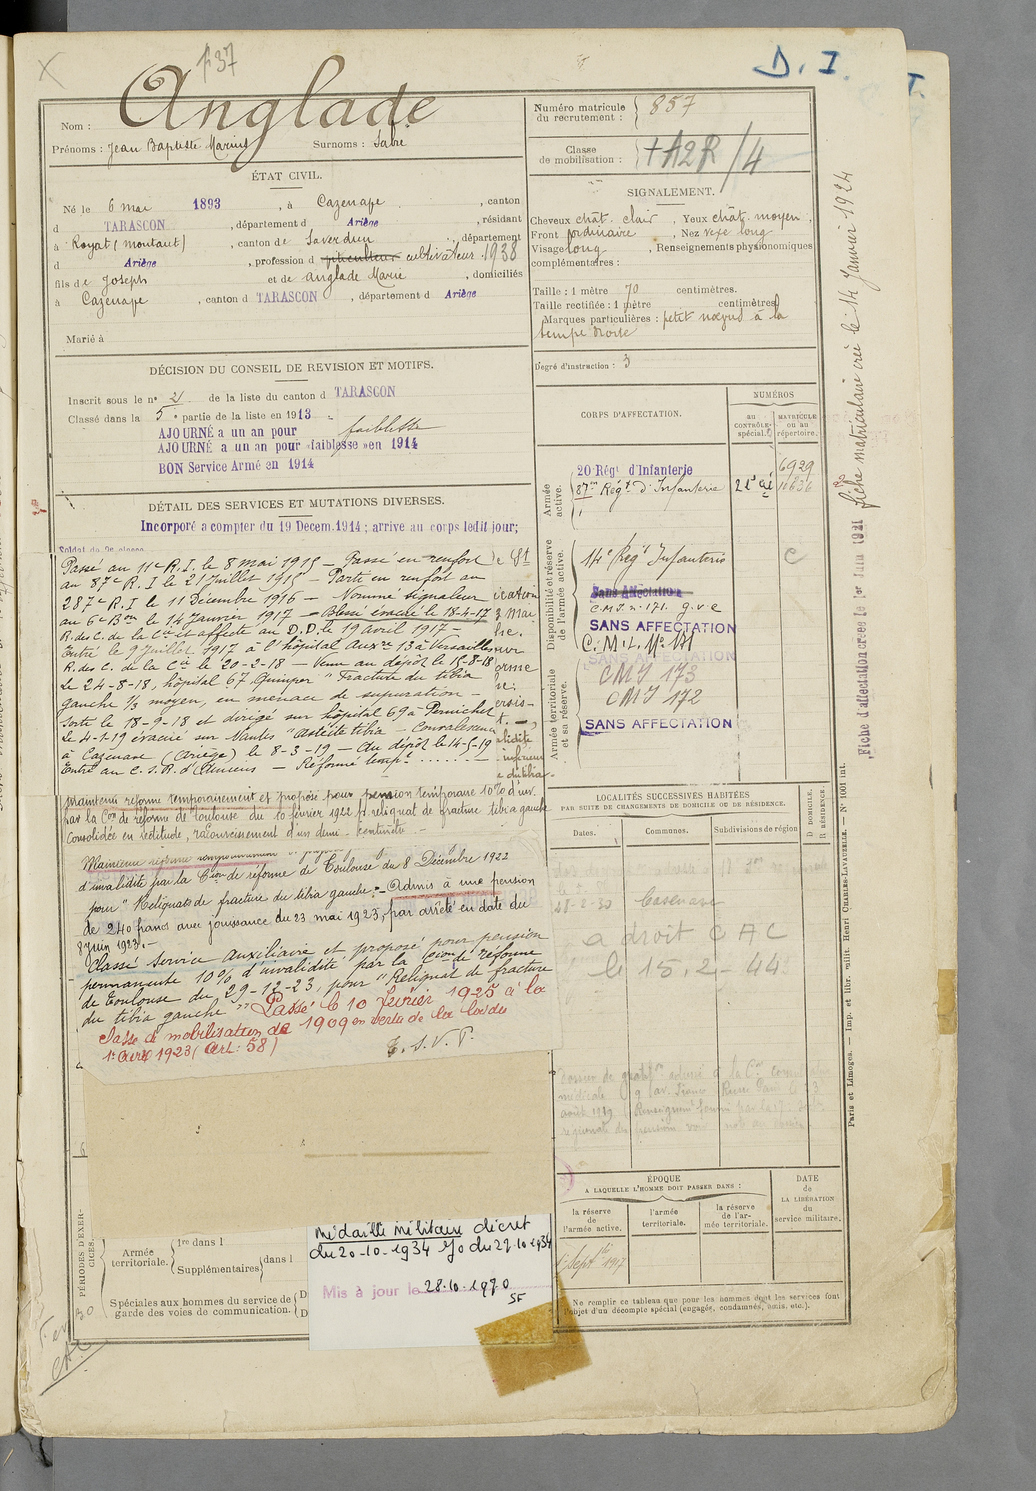 137
D. I.
Anglade
Nom :
Prénoms : Jean Baptiste Marius Surnoms : Fabre
Numéro matricule du recrutement : 857
Classe de mobilisation : + A2R/4
ÉTAT CIVIL.
Né le 6 mai 1893, à Cazenave, canton
d TARASCON, département d Ariège, résidant
à Royat (montaut), canton de Saverdun, département
d Ariège, profession d cultivateur 1938
fils de Joseph et de Anglade Marie, domiciliés
à Cazenave, canton d TARASCON, département d Ariège
Marié à
SIGNALEMENT.
Cheveux chât. clair, Yeux chât. moyen,
Front ordinaire, Nez vexe long
Visage long, Renseignements physionomiques
complémentaires :
Taille : 1 mètre 70 centimètres.
Taille rectifiée : 1 mètre centimètres.
Marques particulières : petit nœvus à la
tempe droite
Degré d'instruction : 3
DÉCISION DU CONSEIL DE REVISION ET MOTIFS.
Inscrit sous le n° 21 de la liste du canton d TARASCON
Classé dans la 5e partie de la liste en 1913
AJOURNÉ a un an pour faiblesse
AJOURNÉ a un an pour «faiblesse» en 1914
BON Service Armé en 1914
DÉTAIL DES SERVICES ET MUTATIONS DIVERSES.
Incorporé a compter du 19 Decem. 1914 ; arrive au corps ledit jour;
Soldat de 2e classe
Passé au 11e R.I. le 8 mai 1915 — Passé en renfort
au 87e R.I le 21 Juillet 1915 — Parti en renfort au
287e R.I le 11 Décembre 1916 — Nommé signaleur
au 6e Bon le 14 Janvier 1917 — Blessé évacué le 18-4-17
R. des C. de la Cie et affecté au D.D. le 19 avril 1917 —
Entré le 9 Juillet 1917 à l'hôpital Auxre 13 à Versailles
R. des C. de la Cie le 20-2-18 — Venu au dépôt le 15-8-18
Le 24-8-18, hôpital 67 Quimper "Fracture du tibia
gauche 1/3 moyen, en menace de supuration —
Sorti le 18-9-18 et dirigé sur hôpital 69 à Pornichet
Le 4-1-19 évacué sur Nantes "ostéite tibia — Convalescence
à Cazenave (Ariège) le 8-3-19 — Au dépôt le 14-5-19
Entré au C.S.R. d'Amiens — Réformé tempre ....... —
Maintenu réformé temporairement et proposé pour pension temporaire 10% d'inv.
par la Con de réforme de Toulouse du 10 février 1922 pr reliquat de fracture tibia gauche
Consolidée en rectitude, racourcissement d'un demi-centimètre. —
Maintenu réformé temporairement
d'invalidité par la Cion de réforme de Toulouse du 8 Décembre 1922
pour "Reliquats de fracture du tibia gauche". — Admis à une pension
de 240 francs avec jouissance du 23 mai 1923, par arrêté en date du
8 Juin 1923. —
Classé Service auxiliaire et proposé pour pension
permanente 10% d'invalidité par la Cion de réforme
de Toulouse du 29-12-23, pour "Reliquat de fracture
du tibia gauche" Passé le 10 février 1925 à la
classe de mobilisation de 1909 en vertu de la loi du
1er Avril 1923 (Art. 58)
T. S. V. P.
CORPS D'AFFECTATION.
NUMÉROS
au CONTRÔLE spécial.
MATRICULE ou au répertoire.
Armée active.
20 Régt d'Infanterie 6929
87me Régt d'Infanterie
Disponibilité et réserve de l'armée active.
14e Regt Infanterie
Sans Affectation
C.M.I. n° 171. g.v.c
SANS AFFECTATION
SANS AFFECTATION
Armée territoriale et sa réserve.
CMI 173
CMI 172
SANS AFFECTATION
LOCALITÉS SUCCESSIVES HABITÉES
PAR SUITE DE CHANGEMENTS DE DOMICILE OU DE RÉSIDENCE.
Dates.
Communes.
Subdivisions de région
D DOMICILE. R RÉSIDENCE.
Cazenave
a droit C A C
le 15.2-44
ÉPOQUE
A LAQUELLE L'HOMME DOIT PASSER DANS :
DATE de LA LIBÉRATION du service militaire.
la réserve de l'armée active.
l'armée territoriale.
la réserve de l'armée territoriale.
1r Septbre 1917
Ne remplir ce tableau que pour les hommes dont les services font
l'objet d'un décompte spécial (engagés, condamnés, omis, etc.).
PÉRIODES D'EXERCICES.
Armée territoriale.
1re dans l
Supplémentaires dans l
Spéciales aux hommes du service de
garde des voies de communication.
Médaille militaire décret
du 20-10-1934 JO du 27.10.1934
Mis à jour le 28.10.1970
SF
Fiche d'affectation créée le 1er Juin 1921
fiche matriculaire créé le 14 Janvier 1924
Paris et Limoges. — Imp. et libr. milit. Henri CHARLES-LAVAUZELLE. — N° 1001 int.